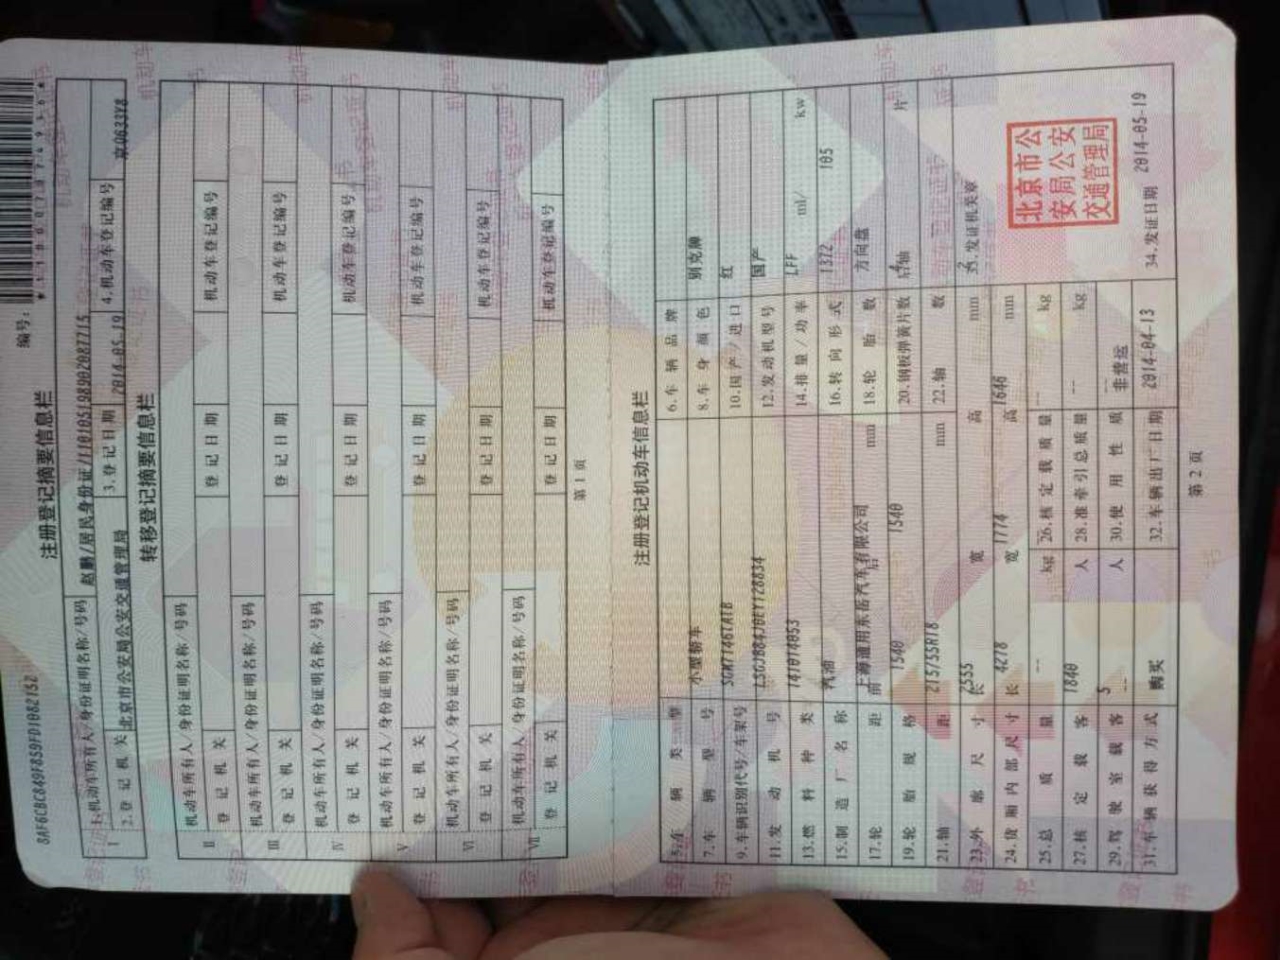 8AF6CBC849F859FD1082152
编号:
注册登记摘要信息栏
I 1.机动车所有人/身份证明名称/号码 赵鹏/居民身份证/110105198902087715
2.登记机关 北京市公安局公安交通管理局 3.登记日期 2014-05-19 4.机动车登记编号 京Q633Y8
转移登记摘要信息栏
II 机动车所有人/身份证明名称/号码
登记机关 登记日期 机动车登记编号
III 机动车所有人/身份证明名称/号码
登记机关 登记日期 机动车登记编号
IV 机动车所有人/身份证明名称/号码
登记机关 登记日期 机动车登记编号
V 机动车所有人/身份证明名称/号码
登记机关 登记日期 机动车登记编号
VI 机动车所有人/身份证明名称/号码
登记机关 登记日期 机动车登记编号
VII 机动车所有人/身份证明名称/号码
登记机关 登记日期 机动车登记编号
第1页
注册登记机动车信息栏
5.车辆类型 小型轿车 6.车辆品牌 别克牌
7.车辆型号 8.车身颜色 红
9.车辆识别代号/车架号 10.国产/进口 国产
11.发动机号 141014053 12.发动机型号 LFF
13.燃料种类 汽油 14.排量/功率 1372 ml/ 105 kw
15.制造厂名称 上海通用东岳汽车有限公司 16.转向形式 方向盘
17.轮距 前 1540 后 1540 mm 18.轮胎数 4
19.轮胎规格 215/55R18 20.钢板弹簧片数 后轴 片
21.轴距 2555 mm 22.轴数 2
23.外廓尺寸 长 4278 宽 1774 高 1646 mm
33.发证机关章
24.货厢内部尺寸 长 宽 高 mm
北京市公
安局公安
交通管理局
25.总质量 1840 kg 26.核定载质量 -- kg
27.核定载客 5 人 28.准牵引总质量 -- kg
29.驾驶室载客 -- 人 30.使用性质 非营运
31.车辆获得方式 购买 32.车辆出厂日期 2014-04-13 34.发证日期 2014-05-19
第2页